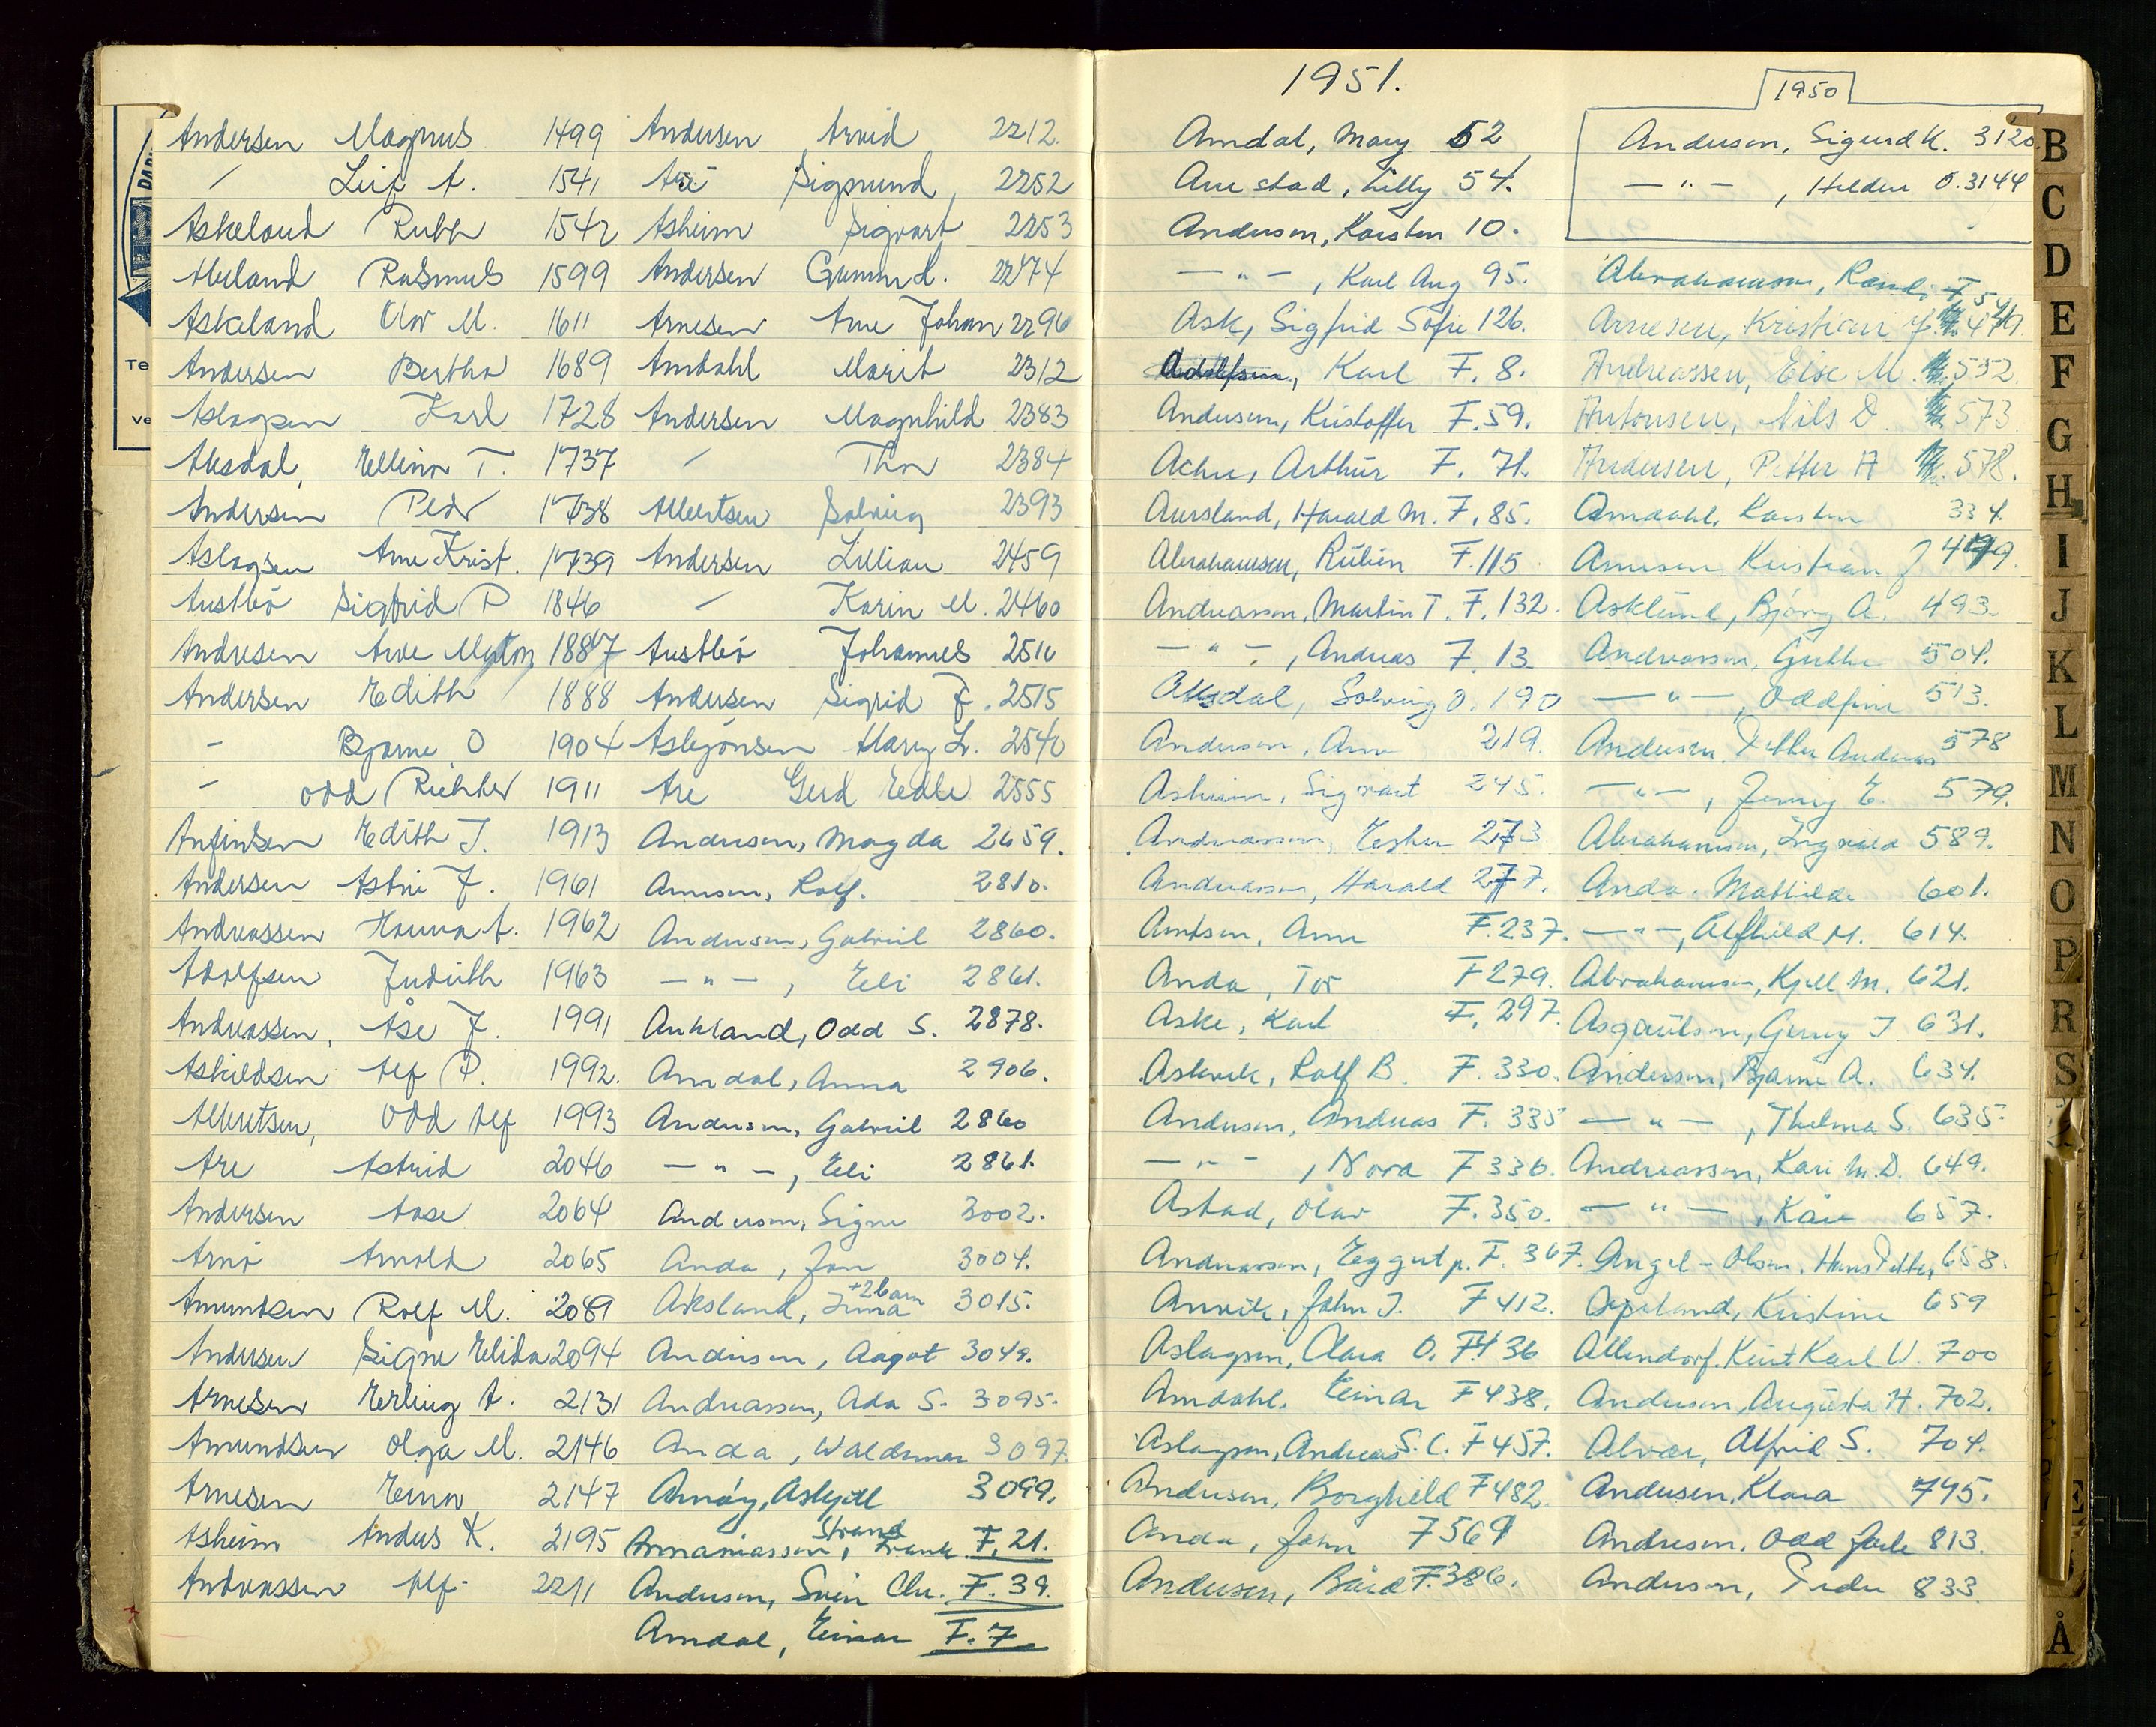 Andersen Magnus 1499
〃 Leif A. 1541
Askeland Ruth 1542
Aeuland Rasmus 1599
Askeland Olav M. 1611
Andersen Bertha 1689
Aslagsen Karl 1728
Aksdal, Ellinor T. 1737
Andersen Peder 1738
Aslagsen Arne Krist. 1739
Austbö Sigfrid P 1846
Andresen Arve 1887
Andersen Edith 1888
- Bjarne O 1904
- Odd Richter 1911
Anfinsen Edith J. 1913
Andersen Astri J. 1961
Andreassen Hanna A. 1962
Adolfsen Judith 1963
Andreassen, Åse J. 1991
Askildsen Alf P. 1992.
Albretsen, Odd Alf 1993
Are Astrid 2046
Andersen Aase 2064
Arnö Arnold 2065
Amundsen Rolf M. 2089
Andersen Signe Elida 2094
Arnesen Erling A. 2131
Amundsen Olga M. 2146
Arnesen Einar 2147
Asheim Anders K. 2195
Andreassen Alf 2211
Andersen Arvid 2212.
Are Sigmund 2252
Asheim Sigvart 2253
Andersen Gunn L. 2274
Arnesen Arne Johan 2296
Amdahl Marit 2312
Andersen Magnhild 2383
〃 Thor 2384
Albertsen Solveig 2393
Andersen Lillian 2459
〃 Karin M. 2460
Austbö Johannes 2510
Andersen Sigrid F. 2515
Asbjönsen Mary L. 2540
Are Gerd Edle 2555
Andersen, Magda 2659.
Arnesen, Rolf. 2810.
Andersen, Gabriel 2860.
— " — , Eli 2861.
Aukland, Odd S. 2878.
Amdal, Anna 2906.
Andersen, Gabriel 2860
— " — , Eli 2861.
Andersen, Signe 3002.
Anda, Jon 3004.
+ 2 barn
Aksland, Inna 3015.
Andersen, Aagot 3049.
Andreassen, Ada S. 3095.
Anda, Waldemar 3097.
Arnöy, Askjell 3099.
Strand
Annaniassen, Frank F. 21.
Andersen, Svein Chr. F. 39.
Amdal, Einar F. 7
1951.
Amdal, Mary 52
Aurstad, Lilly 54.
Andersen, Karsten 10.
— " — , Karl Aug 95.
Ask, Sigfrid Sofie 126.
Adolfsen, Karl F. 8.
Andersen, Kristoffer F. 59.
Achu, Arthur F. 71.
Aursland, Harald M. F. 85.
Abrahamsen, Ruben F. 115
Andreassen, Martin T. F. 132.
— " — , Andreas F. 13
Aksdal, Solveig O. 190
Andersen, Arne 219.
Asheim, Sigvart 245.
Andreassen, Esther 273
Andreassen, Harald 277.
Arntsen, Arne F. 237.
Anda, Tor F 279.
Aske, Karl F. 297.
Askvik, Rolf B. F. 330.
Andersen, Andreas F. 335
— " — , Nora F 336.
Astad, Olav F. 350.
Andreassen, Eggert p. F. 367.
Anvik, John J. F 412.
Aslagsen, Clara O. F 436
Amdahl, Einar F 438.
Aslagsen, Andreas S. C. F 457.
Andersen, Borghild F 482.
Anda, John F 569
Andersen, Bård F. 386.
1950
Andersen, Sigurd K. 3120.
— " — , Helden O. 3144
Abrahamsen, Randi F 5
Arnesen, Kristian J. 479.
Andreassen, Else M. 552.
Antonsen, Nils D. 573.
Andersen, Petter A 578.
Amdahl, Karsten 334.
Arnesen Kristian J 479.
Asklund, Bjørg A. 493.
Andreassen, Guthe 504.
— " — , Oddfinn 513.
Andersen, Petter Andreas 578
— " — , Jenny E. 579.
Abrahamsen, Ingvald 589.
Anda, Mathilde 601.
— " —, Alfhild M. 614.
Abrahamsen, Kjell M. 621.
Asgautsen, Gerny J 631.
Andersen, Bjarne A. 634.
— " — , Thelma S. 635.
Andreassen, Kari M. D. 649.
— " — , Kåre 657.
Angel-Olsen, Hans Petter, 658.
Apeland, Kristine 659
Allendorf, Kurt Karl W. 700
Andersen, Augusta H. 702.
Alvær, Alfrid S. 704.
Andersen, Klara 795.
Andresen, Odd Jarle 813.
Andersen, Peder 833.
B
C
D
E
F
G
H
I
J
K
L
M
N
O
P
R
S
Å